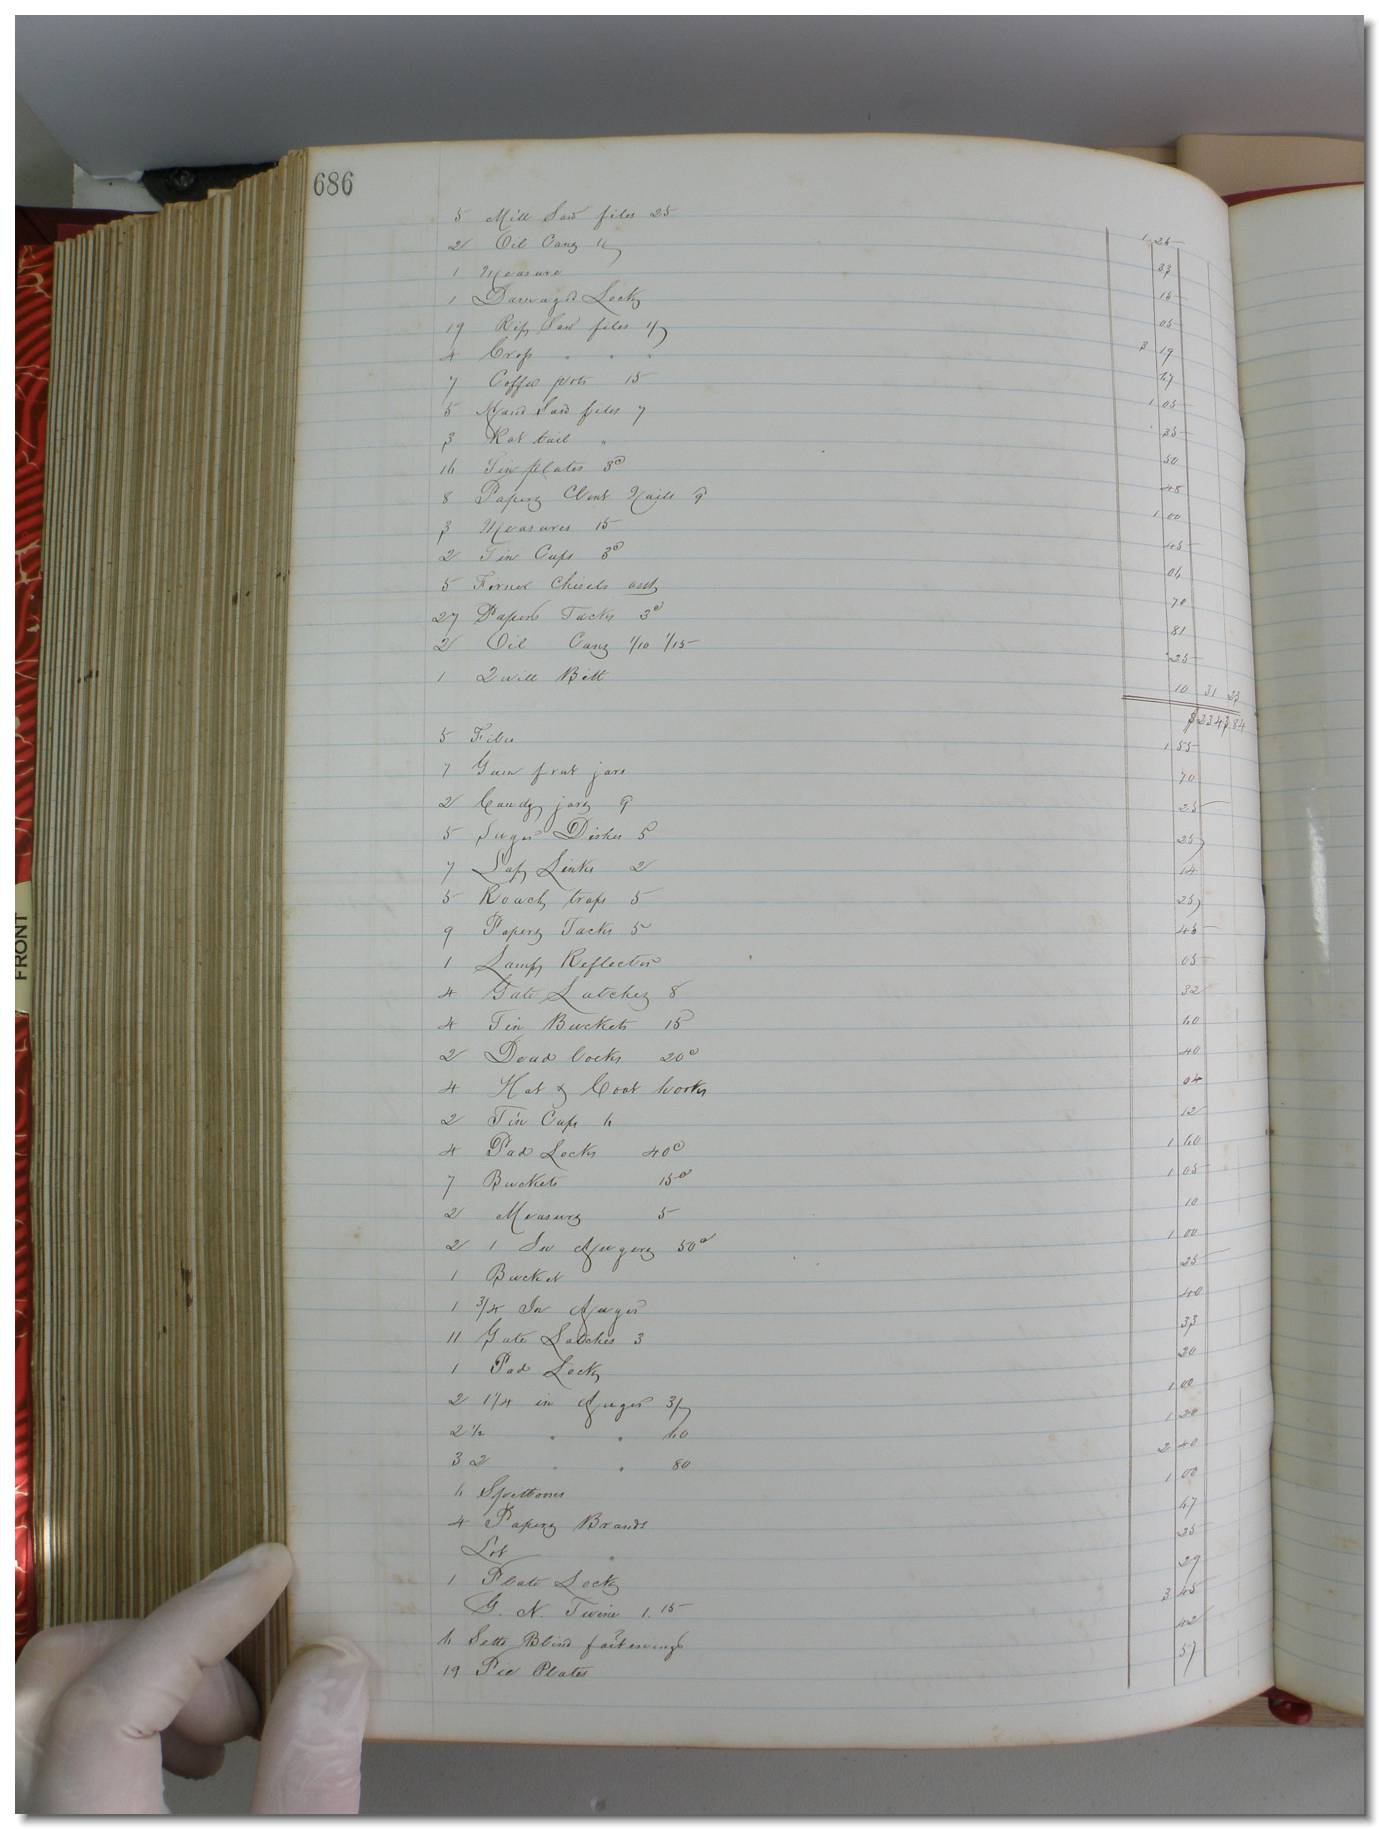 686
5 Mill Saw files 25 1 25
2 Oil Cans 33
1 Measure 15
1 Damaged Lock 05
19 Rip Saw files 17 3 19
4 Crop " " " 67
7 Coffee pots 15 1 05
5 Hand Saw files 7 35
3 Rat tail " 50
16 Tin plates 3c 48
8 Papers Clout Nails 9 1 00
3 Measures 15 45
2 Tin Cups 3c 06
5 Firmer Chisels asst 70
27 Papers Tacks 3c 81
2 Oil Cans 1/10 1/15 25
1 Quill Bitt 10 31 23
$2343.84
5 Files 1 55
7 Gum fruit jars 70
2 Candy jars 9 25
5 Sugar Dishes 5 25
7 Lap Links 2 14
5 Roach traps 5 25
9 Papers Tacks 5 45
1 Lamp Reflector 05
4 Gate Latches 8 32
4 Tin Buckets 15 60
2 Dead Locks 20c 40
4 Hat & Coat hooks 04
2 Tin Cups 6 12
4 Pad Locks 40c 1 60
7 Buckets 15c 1 05
2 Measures 5 10
2 1 In Augers 50c 1 00
1 Bucket 25
1 3/4 In Auger 40
11 Gate Latches 3 33
1 Pad Lock 20
2 1 1/4 in Auger 1 00
2 1/2 " " 60 1 20
3 2 " " 80 2 40
6 Spittoons 1 00
4 Papers Brands 47
Lot " 25
1 Plate Lock 27
G. N. Twine 1.15 3 45
6 Setts Blind fastenings 42
19 Pie Plates 57
FRONT